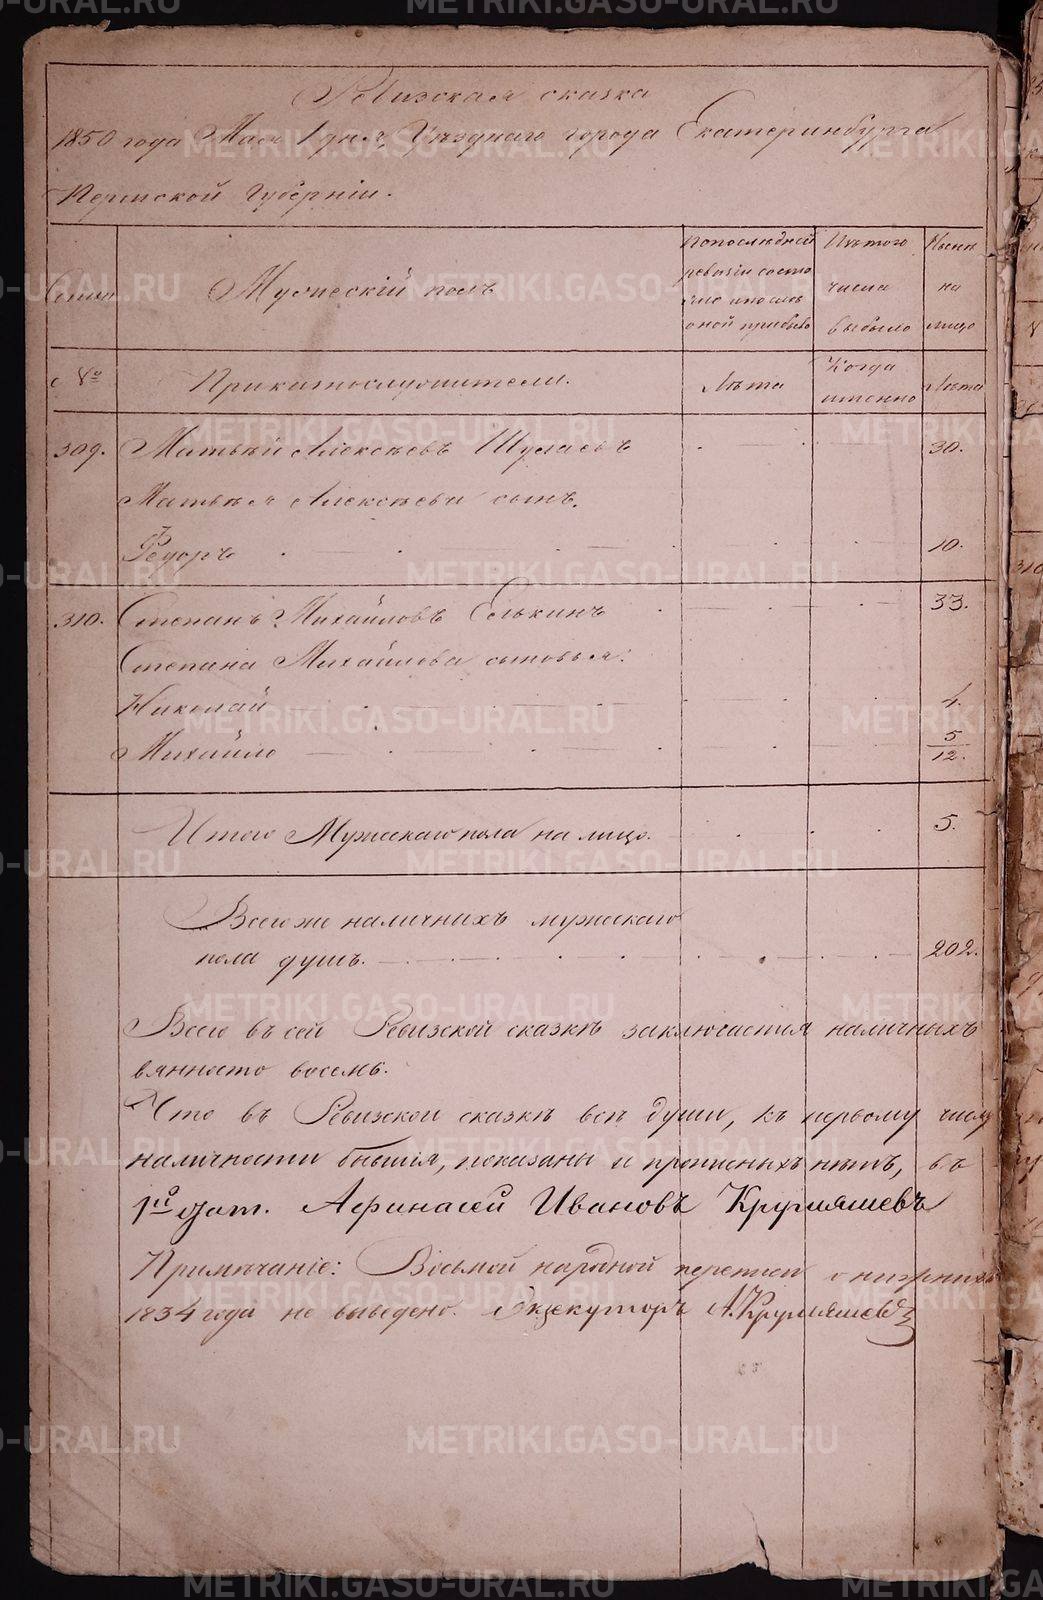 Ревизская сказка
1850 года Мая 1 дня, Уезднаго города Екатеринбурга
Пермской Губернiи.
Мужескiй полъ
По последней
ревизiи состо
яло и после
оной прибыло
Изъ того
числа
выбыло
Ныне
на
лицо
№
Лета
Когда
именно
Лета
309. Матвей Алексеевъ 30.
Матвея Алексеева сынъ.
Федоръ 10.
310. Степанъ Михайловъ Селькинъ 33.
Степана Михайлова сыновья:
Николай 4.
Михайло 5/12.
Итого Мужескаго пола на лицо. 5.
Всего же наличныхъ мужескаго
пола душъ. 202.
Всего въ сей Ревизской сказкѣ заключается наличныхъ
восемь.
Что въ Ревизской сказкѣ всѣ души, къ первому числу
наличности бывшiя, показаны и прописныхъ нѣтъ, въ
1й Афанасей Ивановъ Крумяшевъ
Примѣчанiе: Восьмой народной переписи о
1834 года не выведено. Экзекуторъ А. Крумяшевъ
METRIKI.GASO-URAL.RU